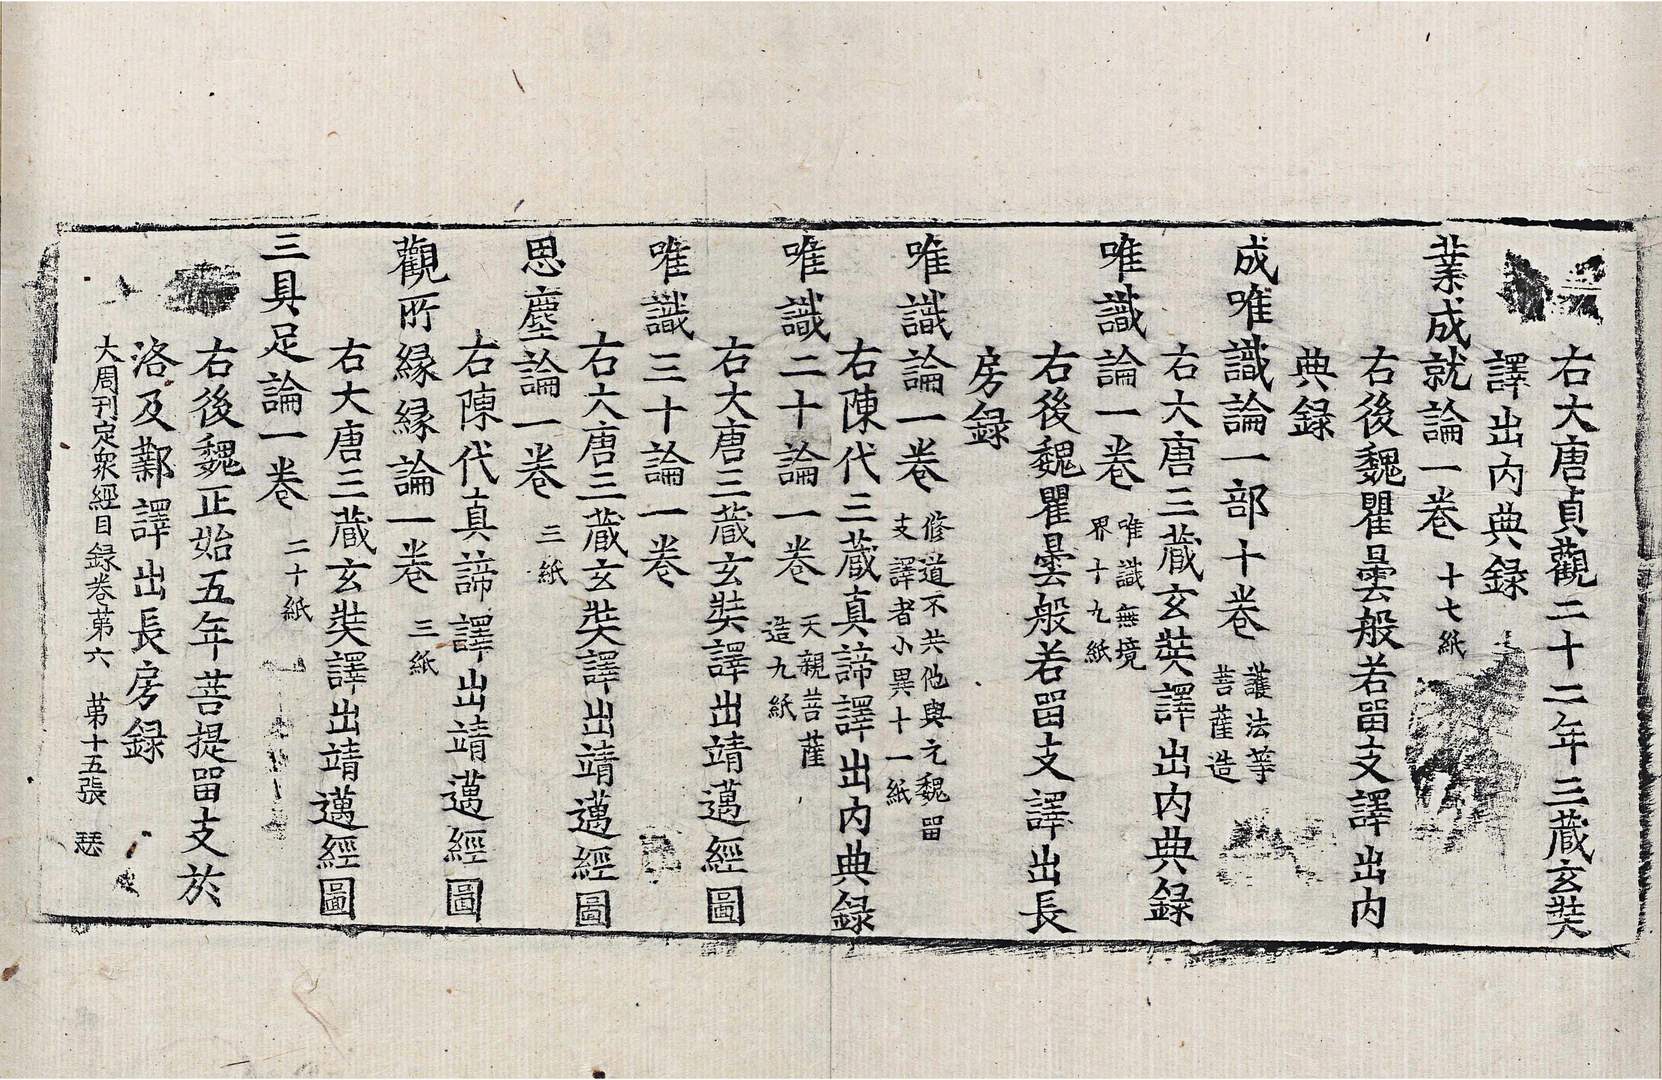 右大唐貞觀二十二年三藏玄奘
譯出内典録
業成就論一卷 十七紙
右後魏瞿曇般若留支譯出内
典録
成唯識論一部十卷 護法等
菩薩造
右大唐三藏玄奘譯出内典録
唯識論一卷 唯識無境
界十九紙
右後魏瞿曇般若留支譯出長
房録
唯識論一卷 修道不共他與元魏留
支譯者小異十一紙
右陳代三藏真諦譯出内典録
唯識二十論一卷 天親菩薩
造九紙
右大唐三藏玄奘譯出靖邁經圖
唯識三十論一卷
右大唐三藏玄奘譯出靖邁經圖
思塵論一卷 三紙
右陳代真諦譯出靖邁經圖
觀所縁縁論一卷 三紙
右大唐三藏玄奘譯出靖邁經圖
三具足論一卷 二十紙
右後魏正始五年菩提留支於
洛及鄴譯出長房録
大周刊定衆經目録卷第六 第十五張 瑟